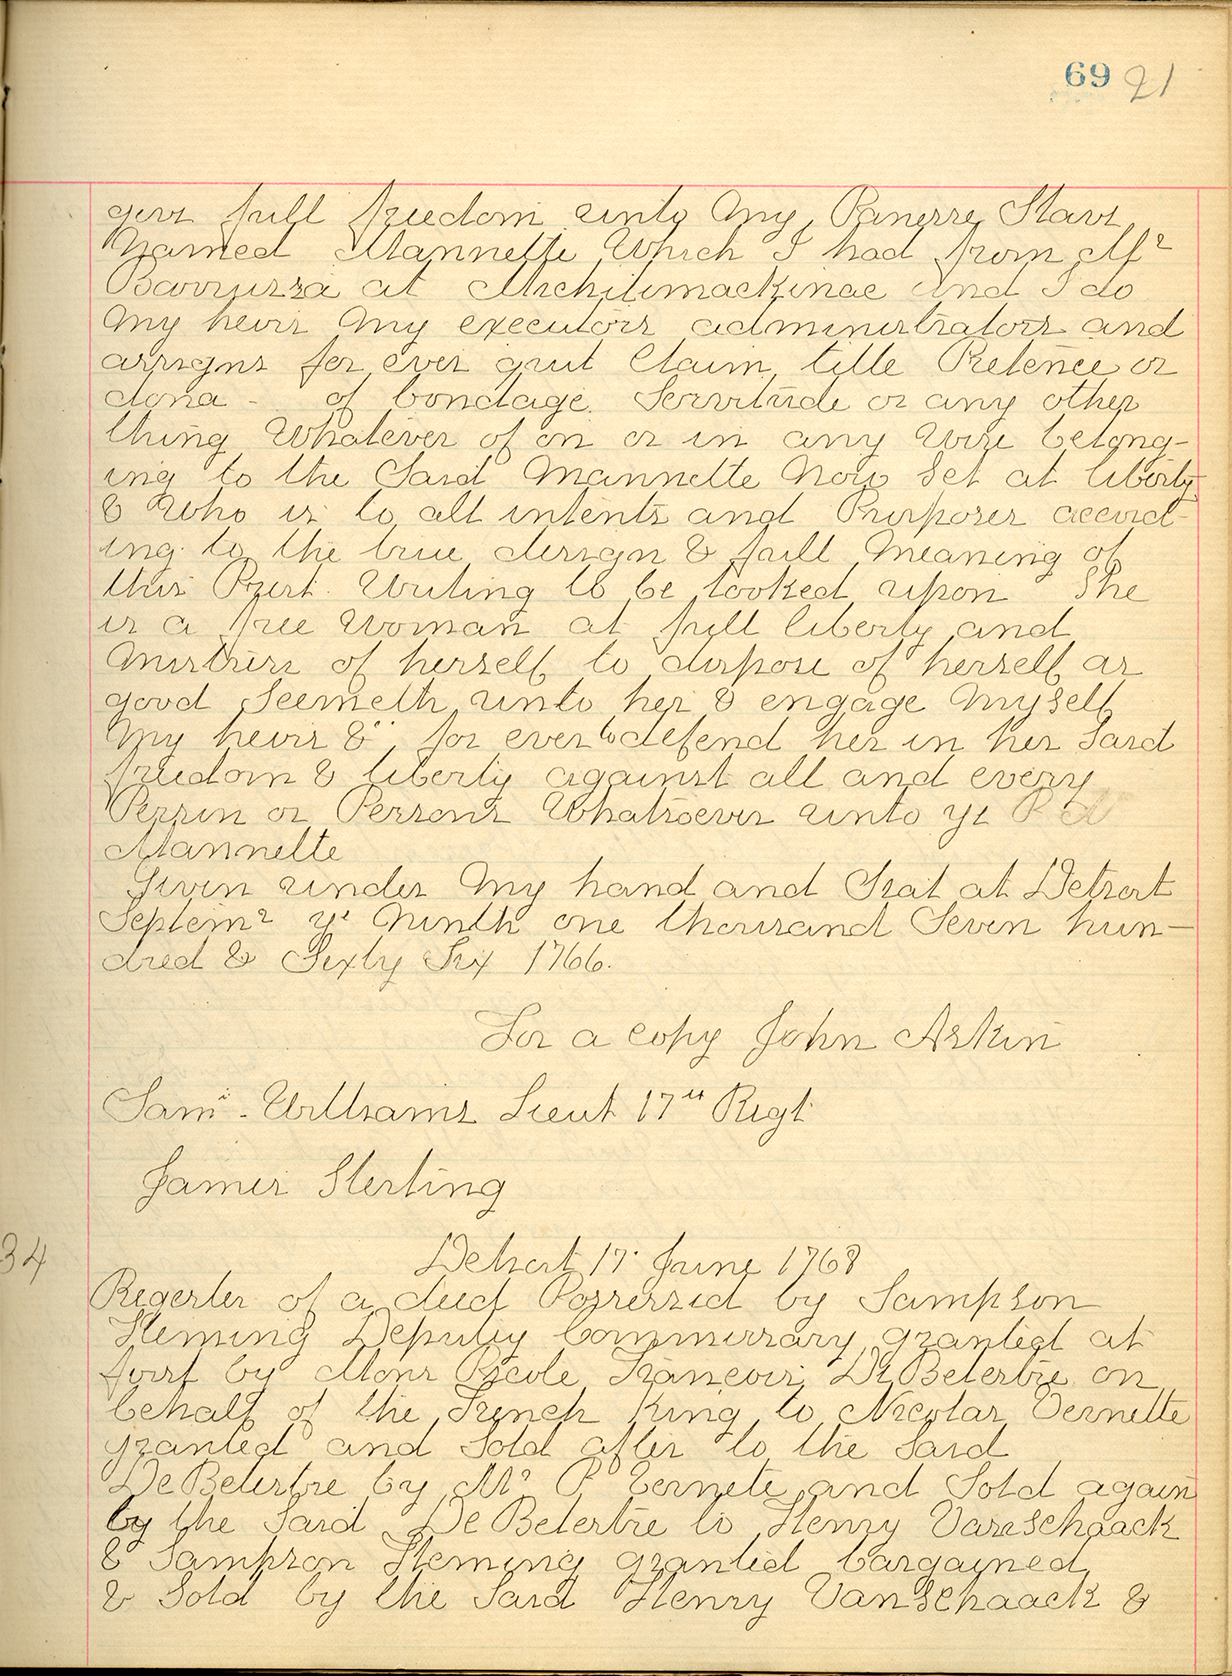 69 21
give full freedom unto My Panesse Slave
Named Mannette Which I had from Mr
at Michilimackinac and I do
My heirs My executors administrators and
assigns for ever quit Claim title Pretence or
dona - of bondage Servitude or any other
thing Whatever of on or in any Wise belong-
ing to the Said Mannette Now Set at liberty
& Who is to all intents and Purposes accord-
ing to the true design & full Meaning of
this Prest Writing to be looked upon She
is a free Woman at full liberty and
Mistriss of herself to dispose of herself as
good Seemeth unto her & engage Myself
My heirs &" for ever to defend her in her Said
freedom & liberty against all and every
Person or Persons Whatsoever unto ye
Mannette
Given under My hand and Seal at Detroit
Septemr ye Ninth one thousand Seven hun-
dred & Sixty Six 1766.
For a copy John Askin
Saml - Williams Lieut 17th Regt
James Sterling
34
Detroit 17 June 1768
Regester of a deed Possessed by Sampson
Fleming Deputy Commissary granted at
first by Mons Picote Francois De Belestre on
behalf of the French King to Nicolas Vernette
granted and Sold after to the Said
De Belestre by Mr P Vernete and Sold again
by the Said De Belestre to Henry Vanschaack
& Sampson Fleming granted bargained
& Sold by the Said Henry Vanschaack &